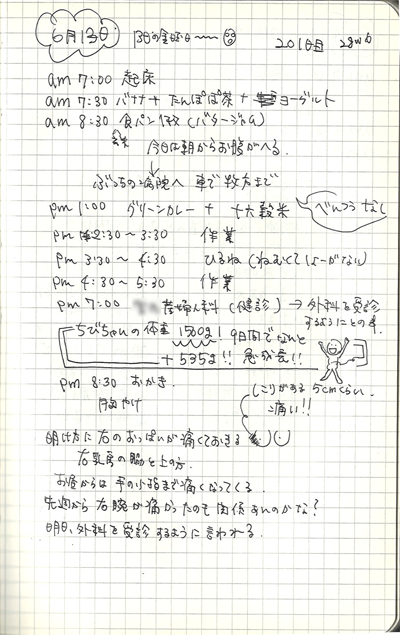 6月13日 13日の金曜日〜〜 201日目 28w5
am 7:00 起床
am 7:30 バナナ + たんぽぽ茶 + ヨーグルト
am 8:30 食パン1枚 (バタージャム)
今日は朝からお腹がへる.
ぶっちの病院へ 車で枚方まで
pm 1:00 グリーンカレー + 十六穀米 べんつうなし
pm 2:30 ~ 3:30 作業
pm 3:30 ~ 4:30 ひるね (ねむくてしょーがない)
pm 4:30 ~ 5:30 作業
pm 7:00 産婦人科 (健診) → 外科を受診
するようにとの事.
ちびちゃんの体重 1500g! 9日間でなんと
+535g!! 急成長!!
pm 8:30 おかき.
胸やけ
しこりがある 5cmくらい.
痛い!!
明け方に右のおっぱいが痛くておきる
右乳房の脇と上の方.
お昼からは手の小指まで痛くなってくる.
先週から右腕が痛かったのも関係あんのかな?
明日、外科を受診するように言われる.